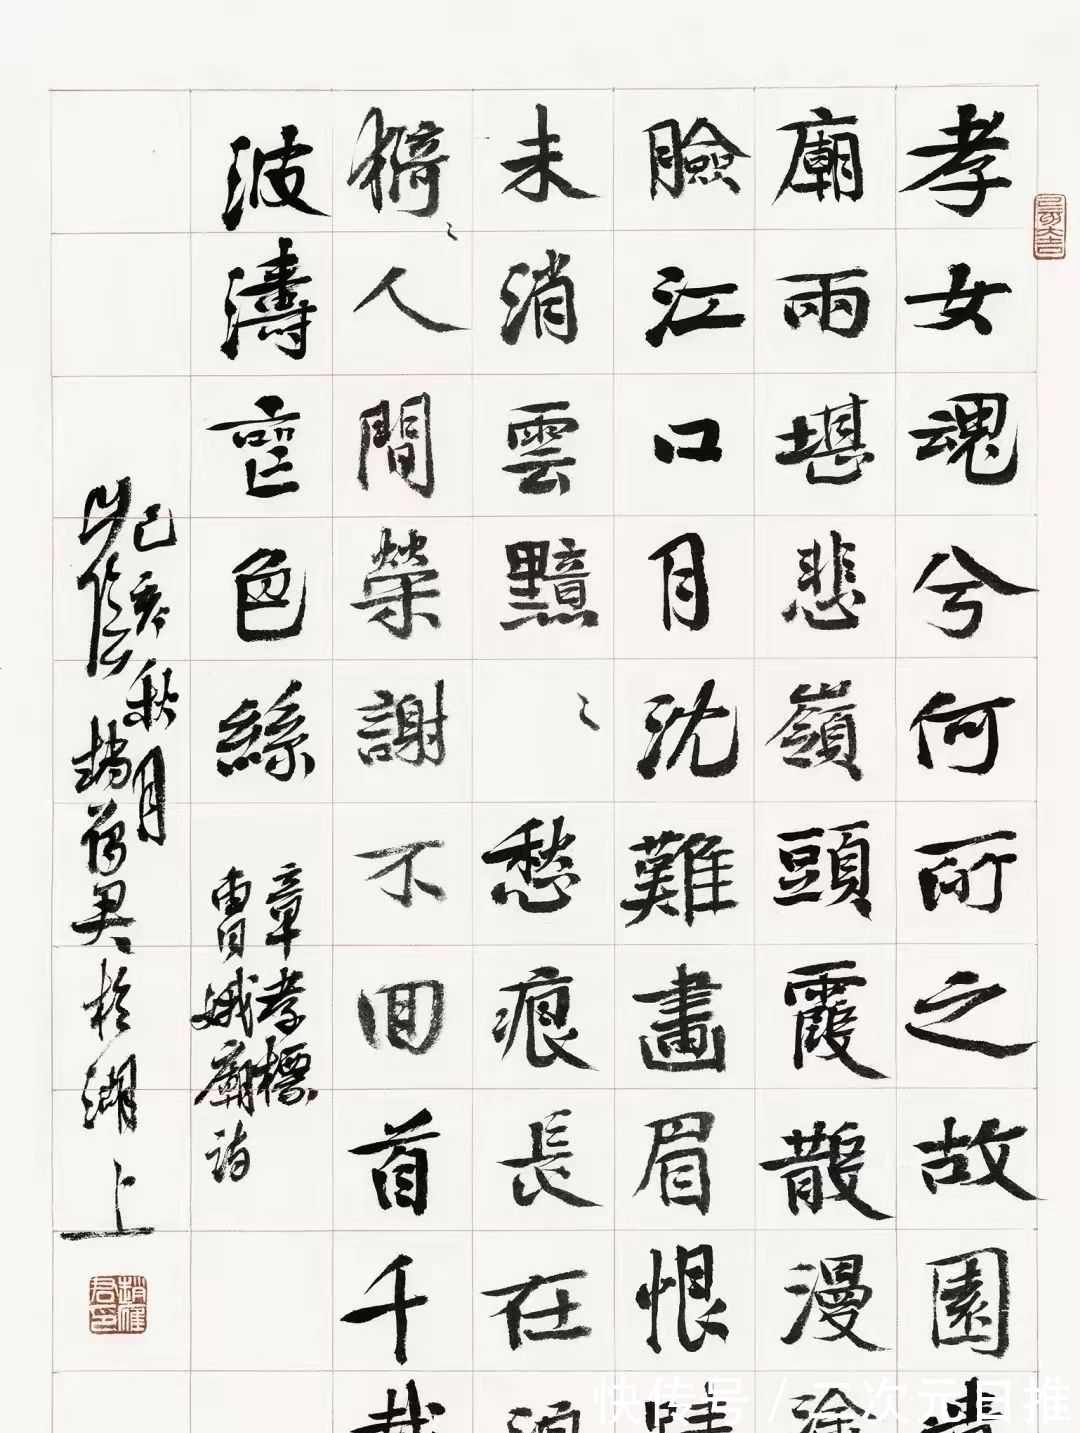 孝女魂兮何所之故園
廟兩堪悲嶺頭霞散漫塗
臉江口月沈難畫眉恨
未消雲黯〻愁痕長在
漪〻人間榮謝不回首千載
波濤虀色絲
章孝標
曹娥廟詩
己亥秋月
山陰趙雁君於湖上
趙雁君印
快传号 / 二次元日推